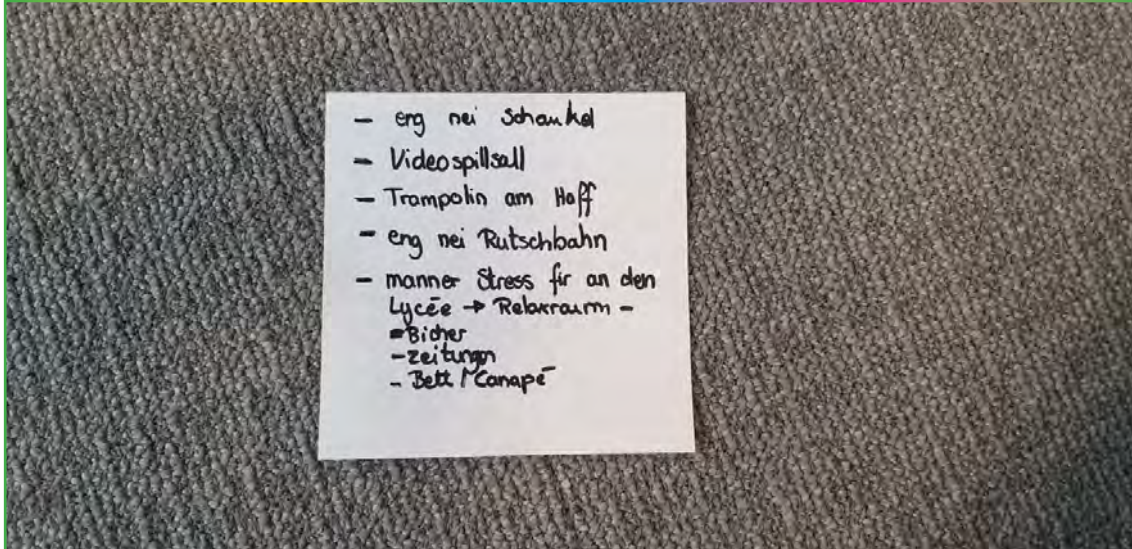 - eng nei Schaukel
- Videospillsall
- Trampolin am Haff
- eng nei Rutschbahn
- manner Stress fir an den
Lycée → Relaxraum -
- Bicher
- Zeitungen
- Bett / Canapé